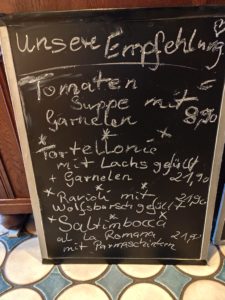 Unsere Empfehlung
Tomaten
Suppe mit
Garnelen 8,90
Tortellonie
mit Lachs gefüllt
+ Garnelen 21,90
Ravioli mit
Wolfsbarsch gefüllt 21,90
Saltimbocca
al La Romana 21,90
mit Parmaschinken